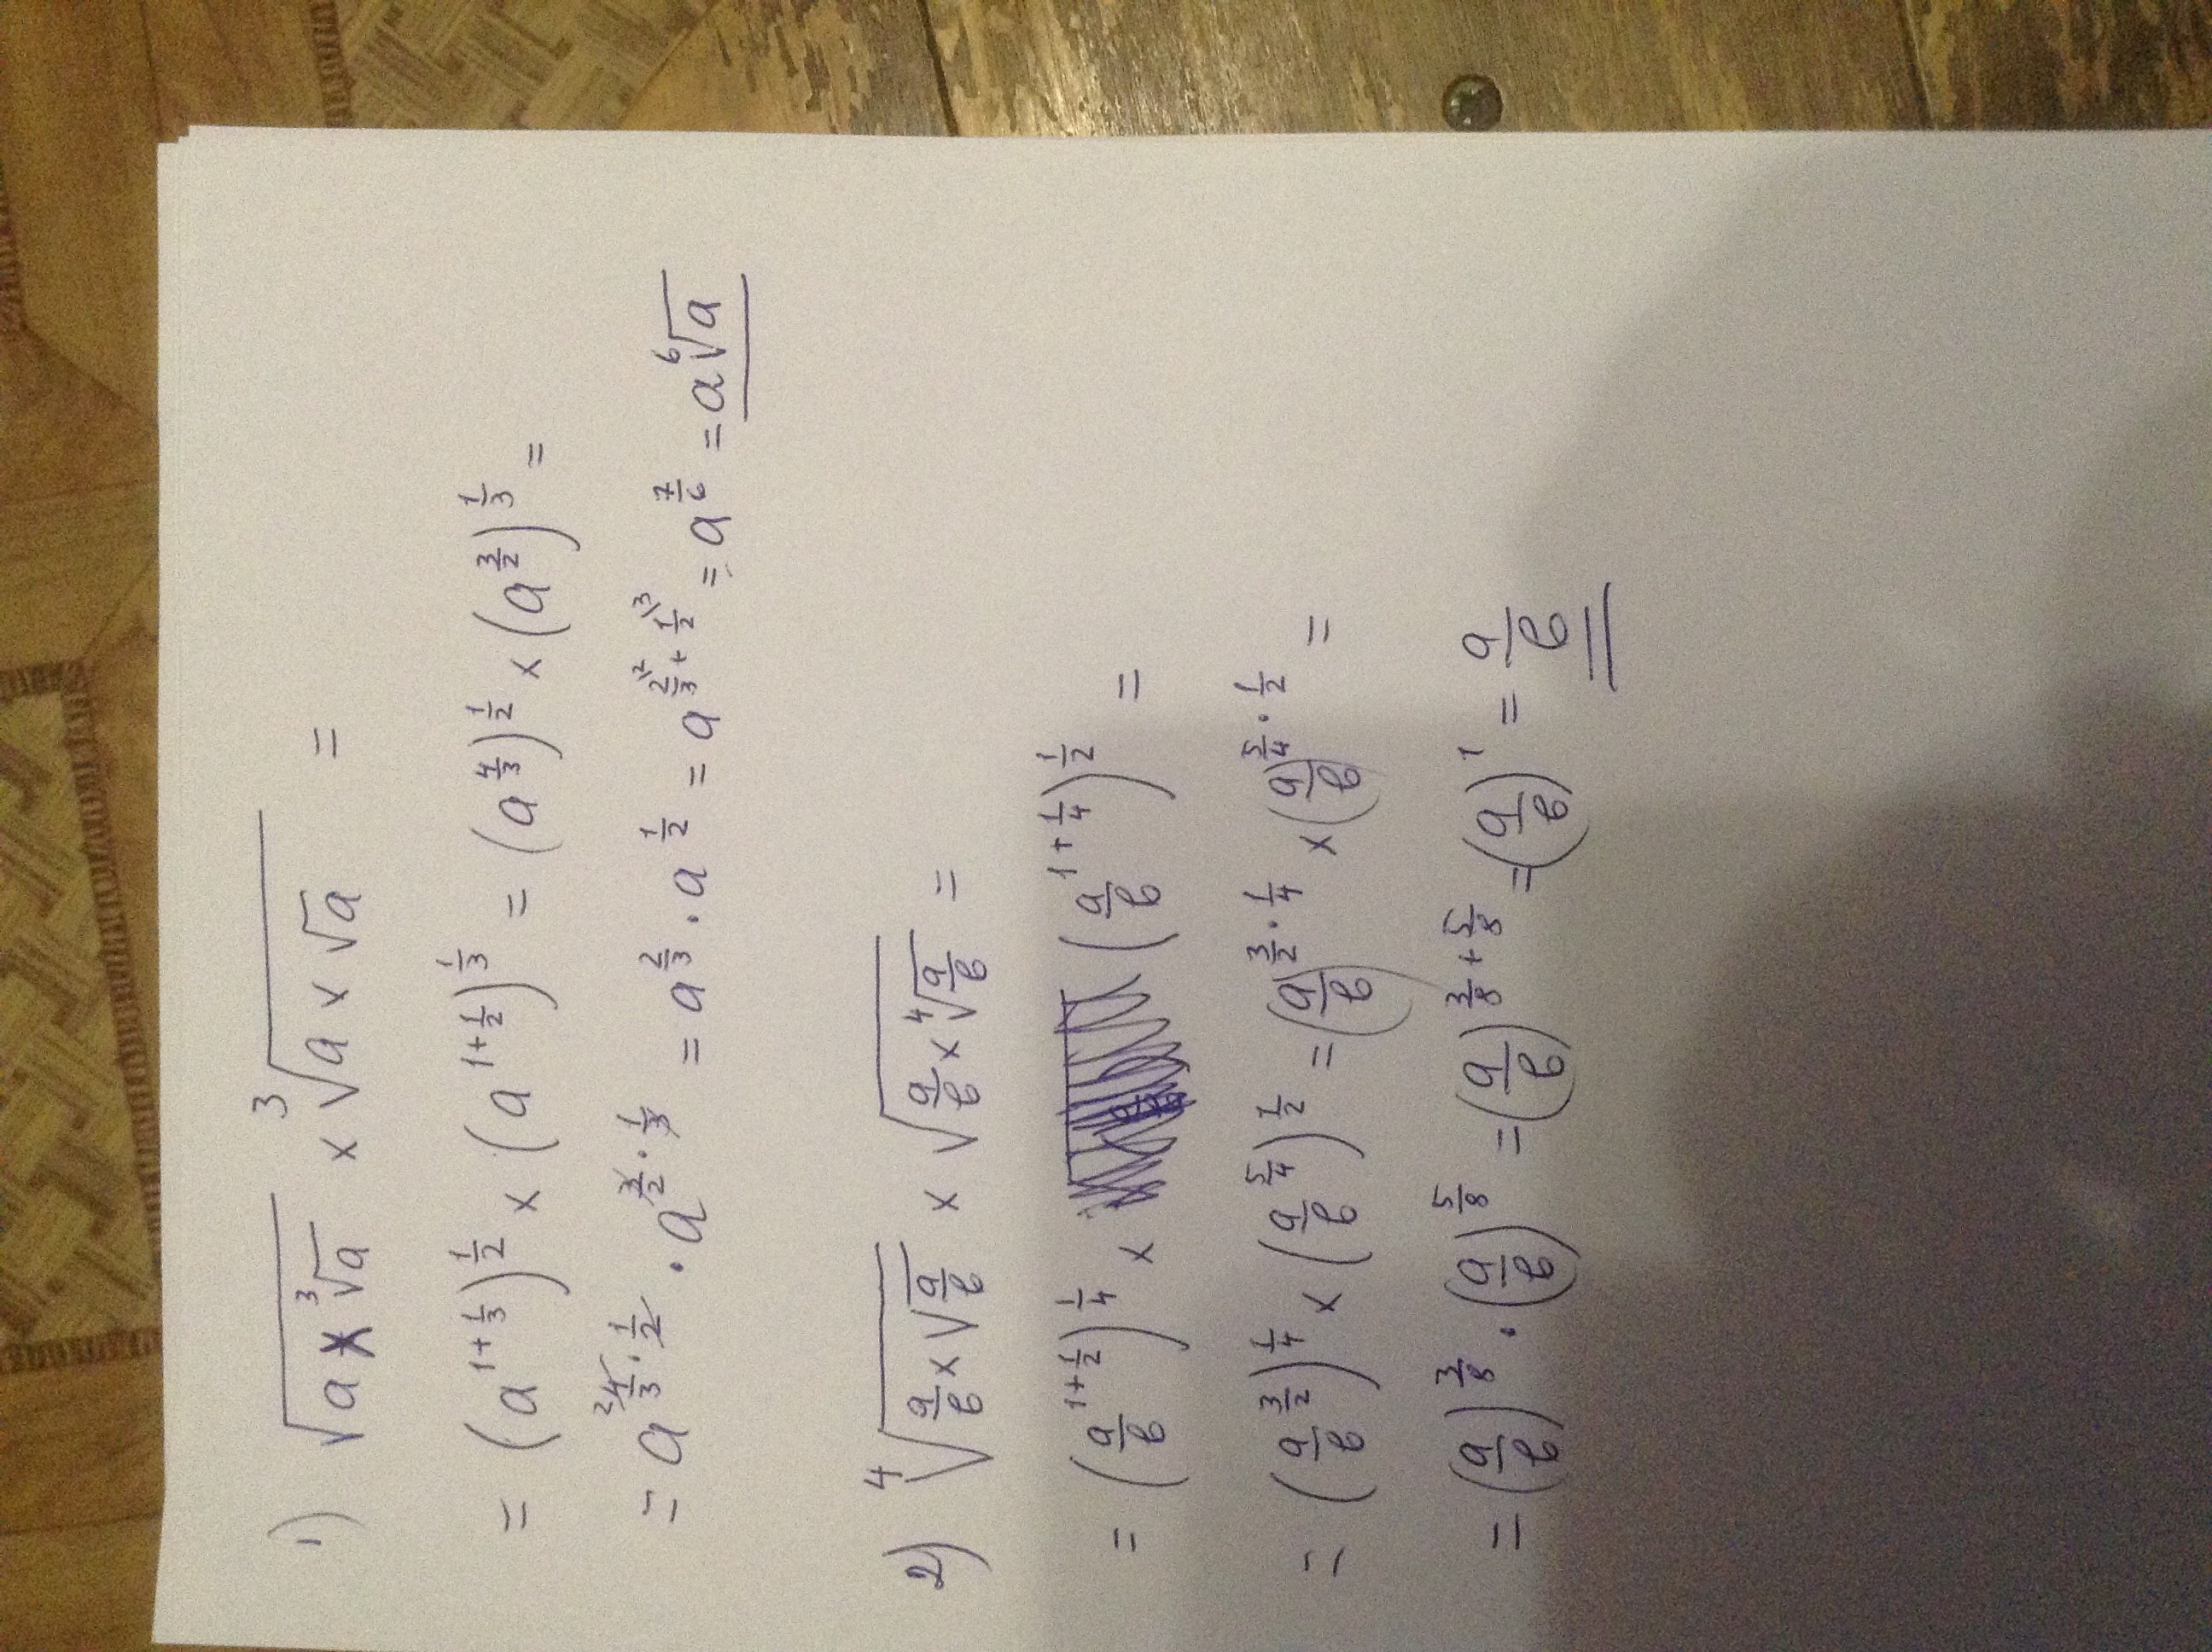 1) √(a × ∛a) × ∛(a × √a) =
= (a^(1+1/3))^(1/2) × (a^(1+1/2))^(1/3) = (a^(4/3))^(1/2) × (a^(3/2))^(1/3) =
= a^(4/3 · 1/2) · a^(3/2 · 1/3) = a^(2/3) · a^(1/2) = a^(2/3 + 1/2) = a^(7/6) = a ⁶√a
2) ⁴√(a/в × √(a/в)) × √(a/в × ⁴√(a/в)) =
= (a/в^(1+1/2))^(1/4) × (a/в^(1+1/4))^(1/2) =
= (a/в^(3/2))^(1/4) × (a/в^(5/4))^(1/2) = (a/в)^(3/2 · 1/4) × (a/в)^(5/4 · 1/2) =
= (a/в)^(3/8) · (a/в)^(5/8) = (a/в)^(3/8 + 5/8) = (a/в)^1 = a/в